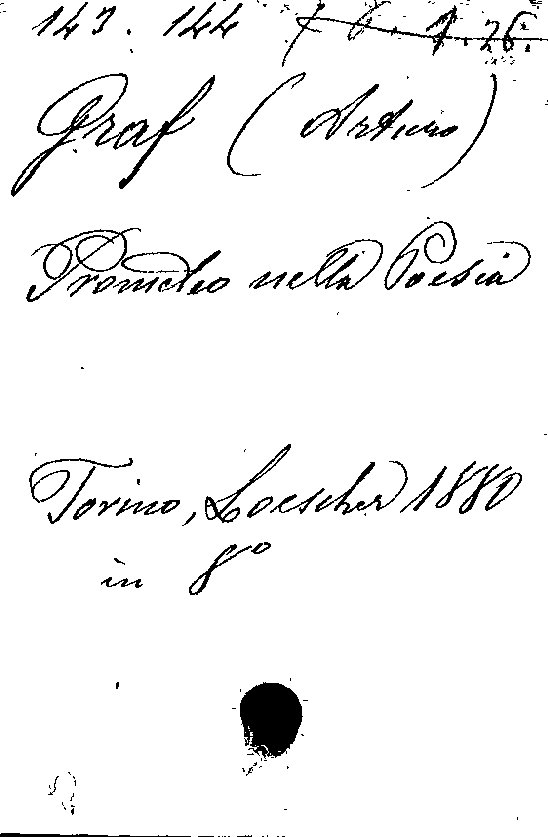 143. 144
Graf (Arturo)
Prometeo nella Poesia
Torino, Loescher 1880
in 8º